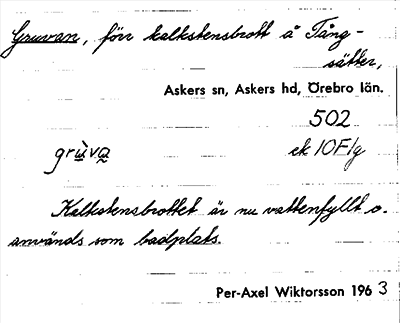 Gruvan, förr kalkstensbrott å Tång-
sätter,
Askers sn, Askers hd, Örebro län.
502
grùva ek 10F/g
Kalkstensbrottet är nu vattenfyllt o.
används som badplats.
Per-Axel Wiktorsson 1963